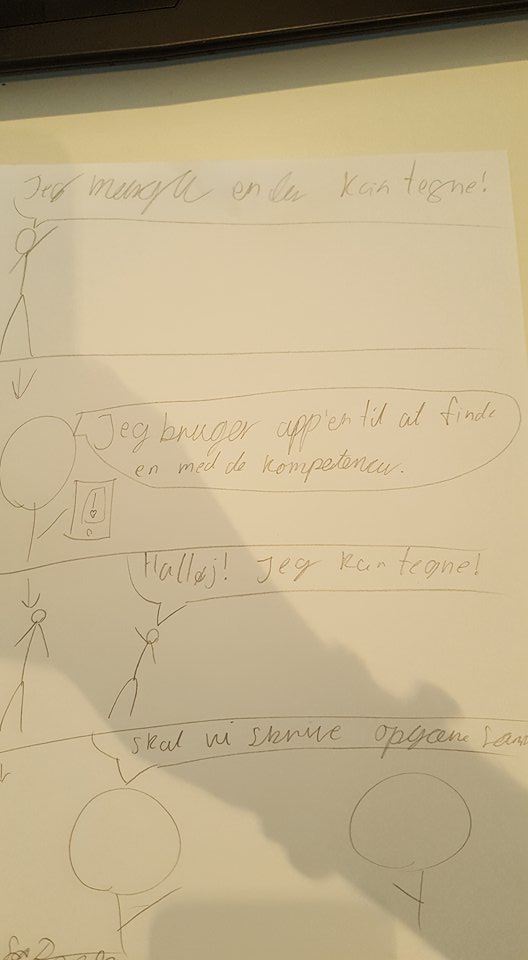 Jeg mangle en der kan tegne!
Jeg bruger app'en til at finde
en med de kompetencer.
Halløj! Jeg kan tegne!
skal vi skrive opgave